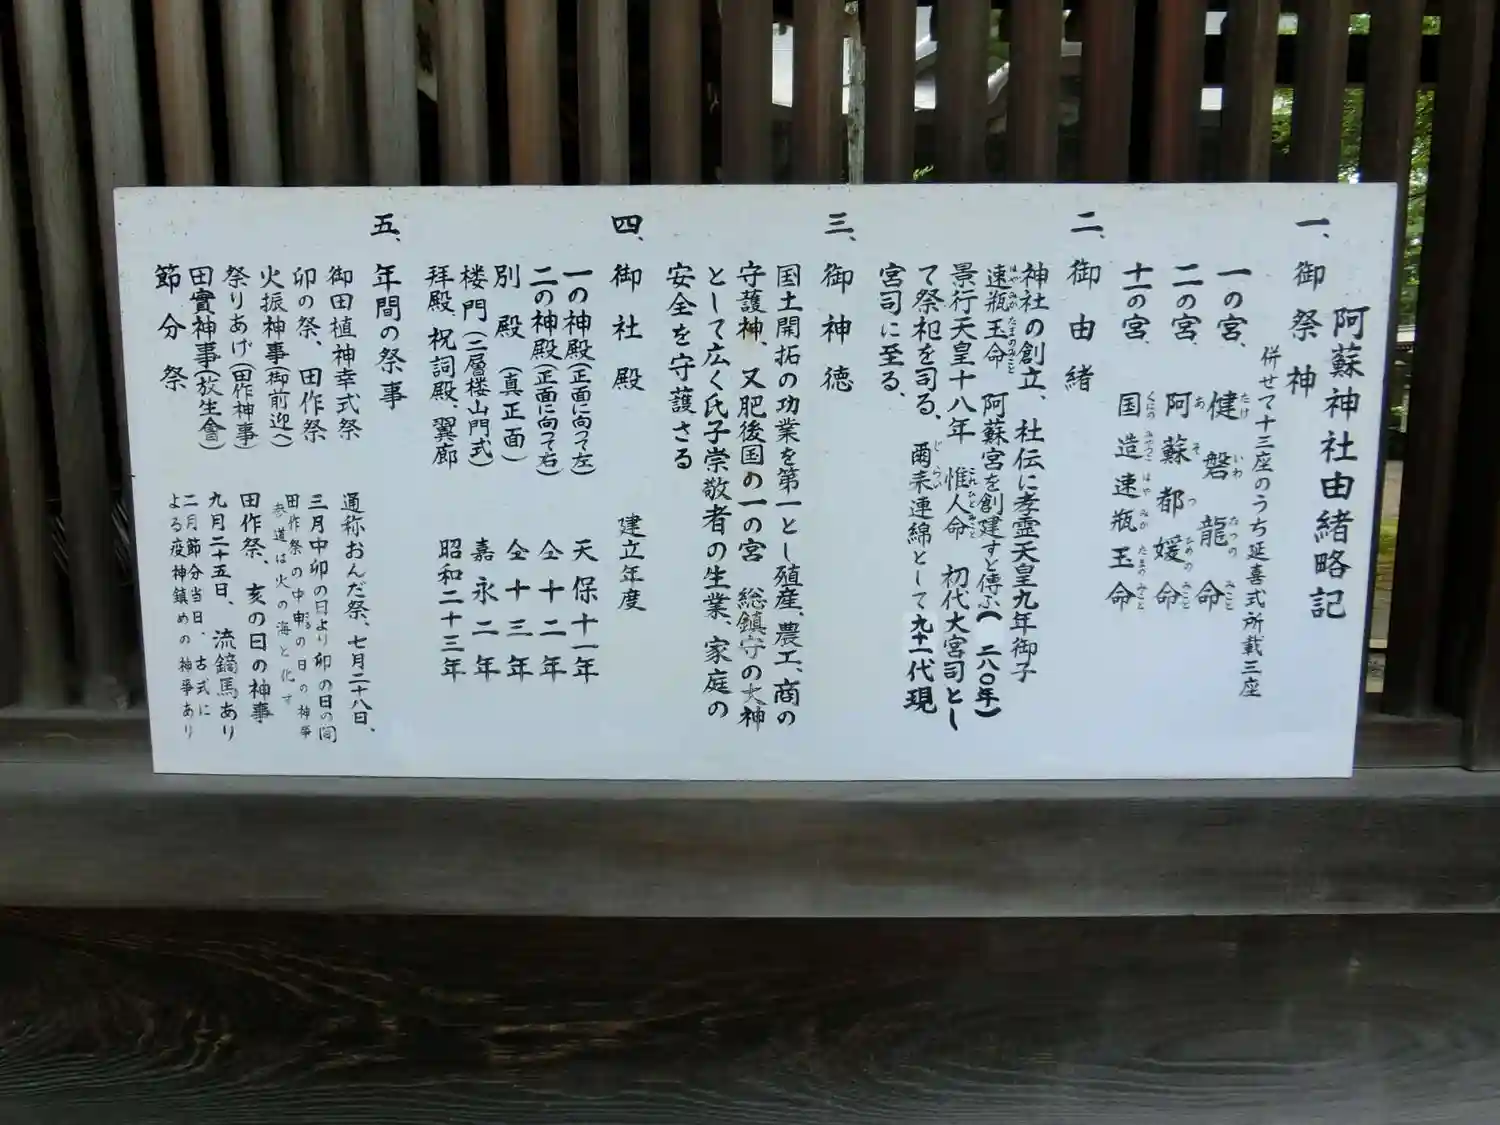 阿蘇神社由緒略記
一、御祭神
併せて十三座のうち延喜式所載三座
一の宮、健磐龍命
たけ いわ たつの みこと
二の宮、阿蘇都媛命
あ そ つ ひめの みこと
十一の宮、国造速瓶玉命
くにの みやつこ はや みか たまの みこと
二、御由緒
神社の創立、社伝に孝霊天皇九年御子
速瓶玉命 阿蘇宮を創建すと傳ふ(二八〇年)
はや みか たまのみこと
景行天皇十八年 惟人命 初代大宮司とし
これひとのみこと
て祭祀を司る、爾来連綿として九十一代現
じ らい
宮司に至る、
三、御神徳
国土開拓の功業を第一とし殖産、農工、商の
守護神、又肥後国の一の宮 総鎮守の大神
として広く氏子崇敬者の生業、家庭の
安全を守護さる
四、御社殿 建立年度
一の神殿(正面に向って左) 天保十一年
二の神殿(正面に向って右) 仝十二年
別殿(真正面) 仝十三年
楼門(二層楼山門式) 嘉永二年
拝殿 祝詞殿、翼廊 昭和二十三年
五、年間の祭事
御田植神幸式祭 通称おんだ祭、七月二十八日、
卯の祭、田作祭 三月中卯の日より卯の日の間
火振神事(御前迎へ) 田作祭の中申の日の神事
参道は火の海と化す
祭りあげ(田作神事) 田作祭、亥の日の神事
田實神事(放生會) 九月二十五日、流鏑馬あり
節分祭 二月節分当日、古式に
よる疫神鎮めの神事あり